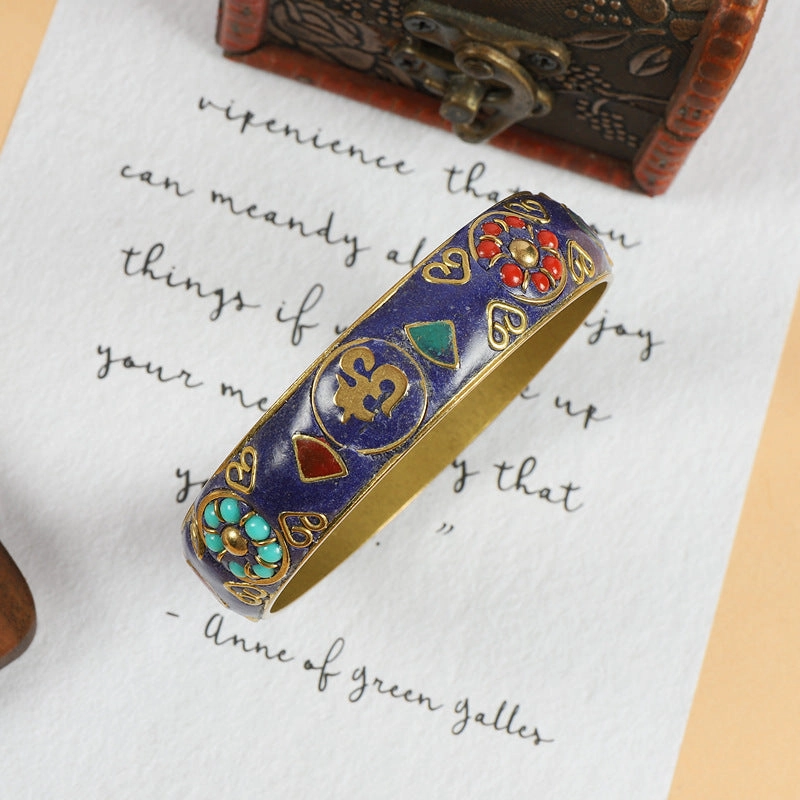 vipenience that you
can meandy al
things if y njoy
your me e up
y y that
. ”
- Anne of green galles